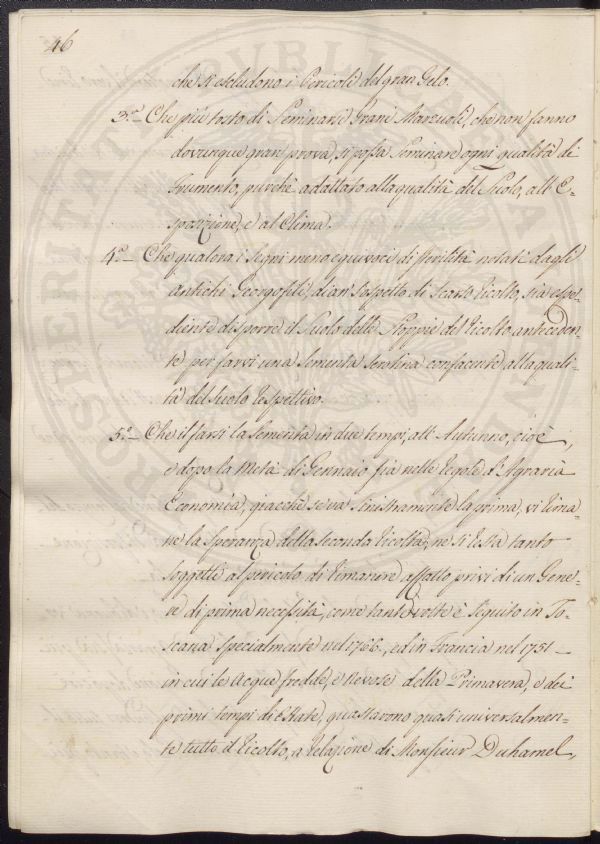 46
che si escludono i Pericoli del gran Gelo.
3.º Che più tosto di Seminarsi Grani Marzuoli, che non fanno
dovunque gran prova, si possa Seminare ogni qualità di
Frumento, purchè adattato alla qualità del Suolo, all'E-
sposizione, e al Clima.
4.º Che qualora i Segni meno equivoci di sterilità notati dagli
antichi Georgofili, dian Sospetto di Scarso Ricolto, sia espe-
diente disporre il Suolo delle Stoppie del Ricolto anteceden-
te per farvi una Sementa Serotina confacente alla quali-
tà del Suolo respettivo.
5.º Che il farsi la Sementa in due tempi, all'Autunno, cioè,
e dopo la Metà di Gennaio sia nelle regole d'Agraria
Economia, giacchè se va sinistramente la prima, vi rima-
ne la Speranza della Seconda Ricolta, ne si resta tanto
soggetti al pericolo di rimanere affatto privi di un Gene-
re di prima necessità, come tante volte è seguito in To-
scana specialmente nel 1766., ed in Francia nel 1751
in cui le Acque fredde, e Nevose della Primavera, e dei
primi tempi di Estate, guastarono quasi universalmen-
te tutto il Ricolto, a relazione di Monsieur Duhamel,
PROSPERITATI PUBLICAE